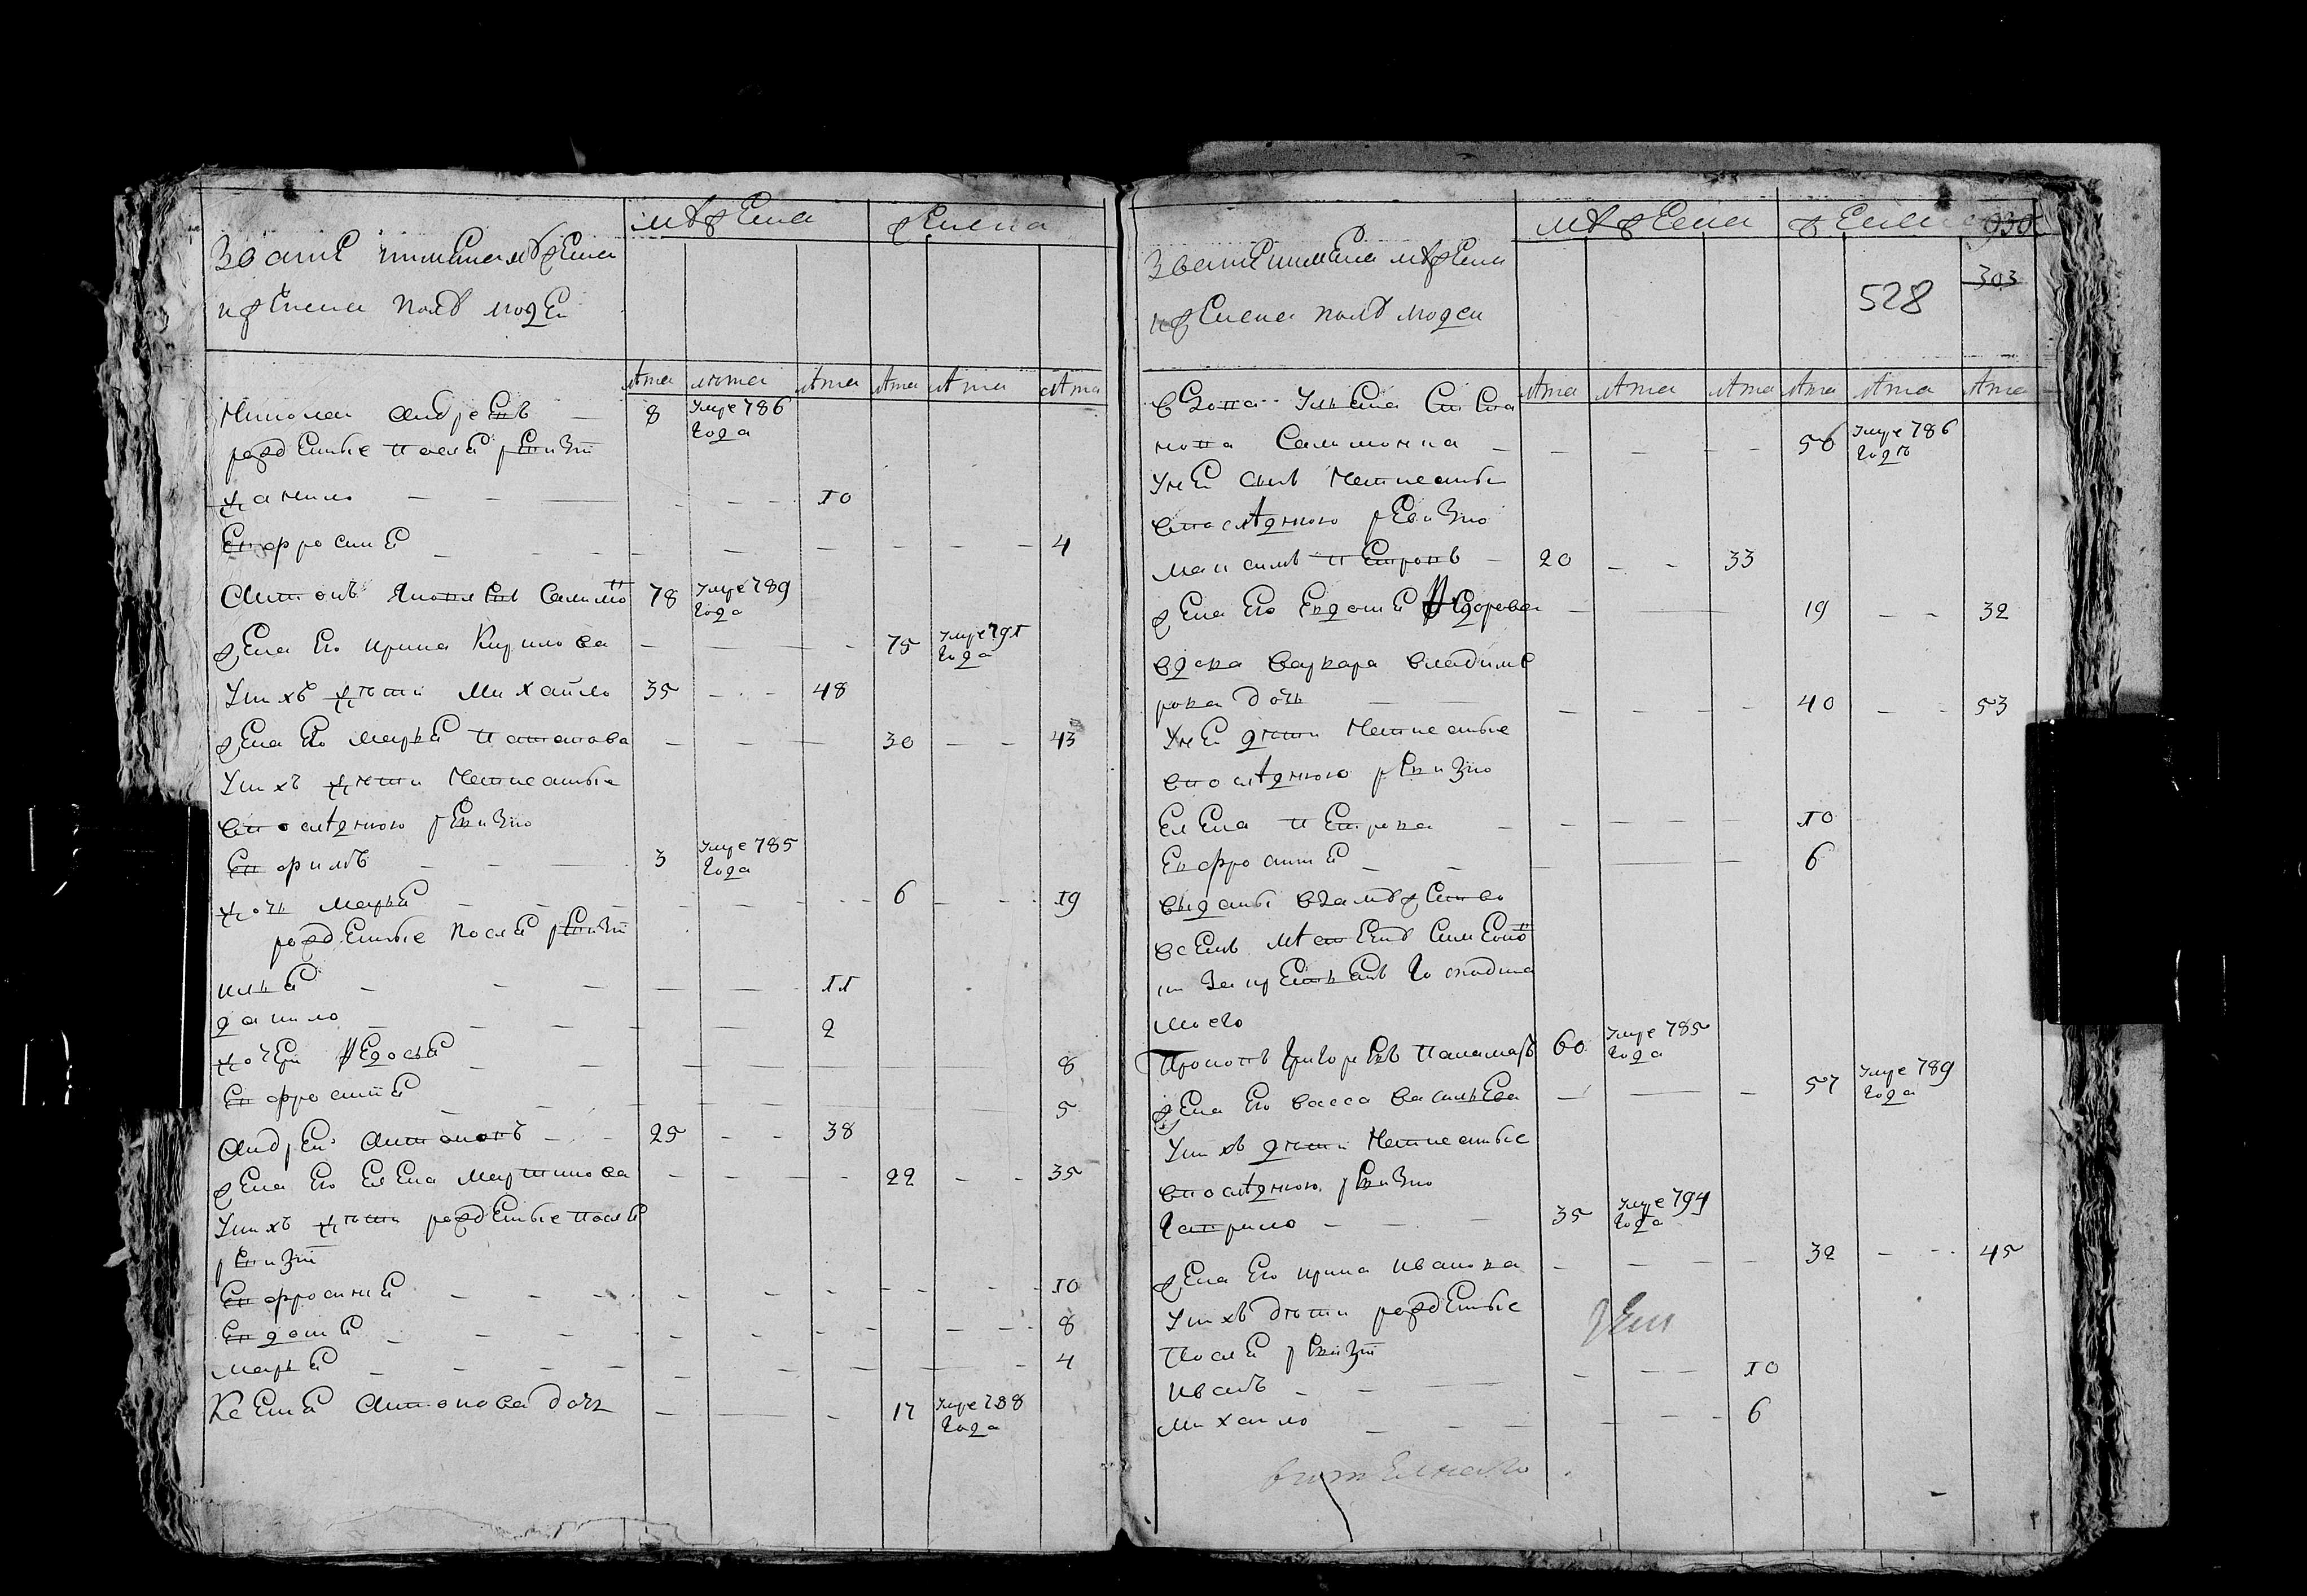 Звание имена мужеска
и женска полу людей
мужеска
женска
лета лета лета лета лета лета
Николай Андреевъ — 8 умре 786 года
рожденные после ревизии
данило — — — — — 10
Евфросинья — — — — — — — — 4
Антонъ Яковлевъ 78 умре 789 года
жена Его ирина Кирилова — — — 75 умре 791 года
У них дети Михайло 35 — — 48
жена Его Марья Потапова — — — 30 — — 43
У них дети Написанные
в последнюю ревизию
Ефимъ — — — 3 умре 785 года
дочь Марья — — — — — 6 — — 19
рожденные после ревизии
илья — — — — — 11
данило — — — — — 2
дочери Федосья — — — — — 8
Евфросинья — — — — — 5
Андрей Антоновъ — — 25 — — 38
жена Его Елена Мартинова — — — — 22 — — 35
У них дети рожденные после
ревизии
Евфросинья — — — — — — — 10
Евдотья — — — — — — — 8
Марья — — — — — — — 4
Ксенья Антонова дочь — — — 17 умре 788 года
Звание имена мужеска
и женска полу людей
мужеска
женска
930
303
528
лета лета лета лета лета лета
вдова Ульяна
— — — — 56 умре 786 году
У ней сынъ Написанный
в последнюю ревизию
Максимъ Петровъ — 20 — — 33
жена Его Евдотья Федорова — — 19 — — 32
вдова Варвара Владиме
рова дочь — — — — — — 40 — — 53
У ней дети Написанные
в последнюю ревизию
Елена Петрова — — — — — 10
Евфросинья — — — — — 6
выданы в замужество
Господина
моего
Прокопъ Григорьевъ 60 умре 785 года
жена Его васса васильева — — — 57 умре 789 года
У них дети Написанные
в последнюю ревизию
Гаврило — — — 35 умре 794 года
жена Его ирина иванова — — — — 32 — — 45
У них дети рожденные
После ревизии
иванъ — — — — — — 10
Михайло — — — — — — 6